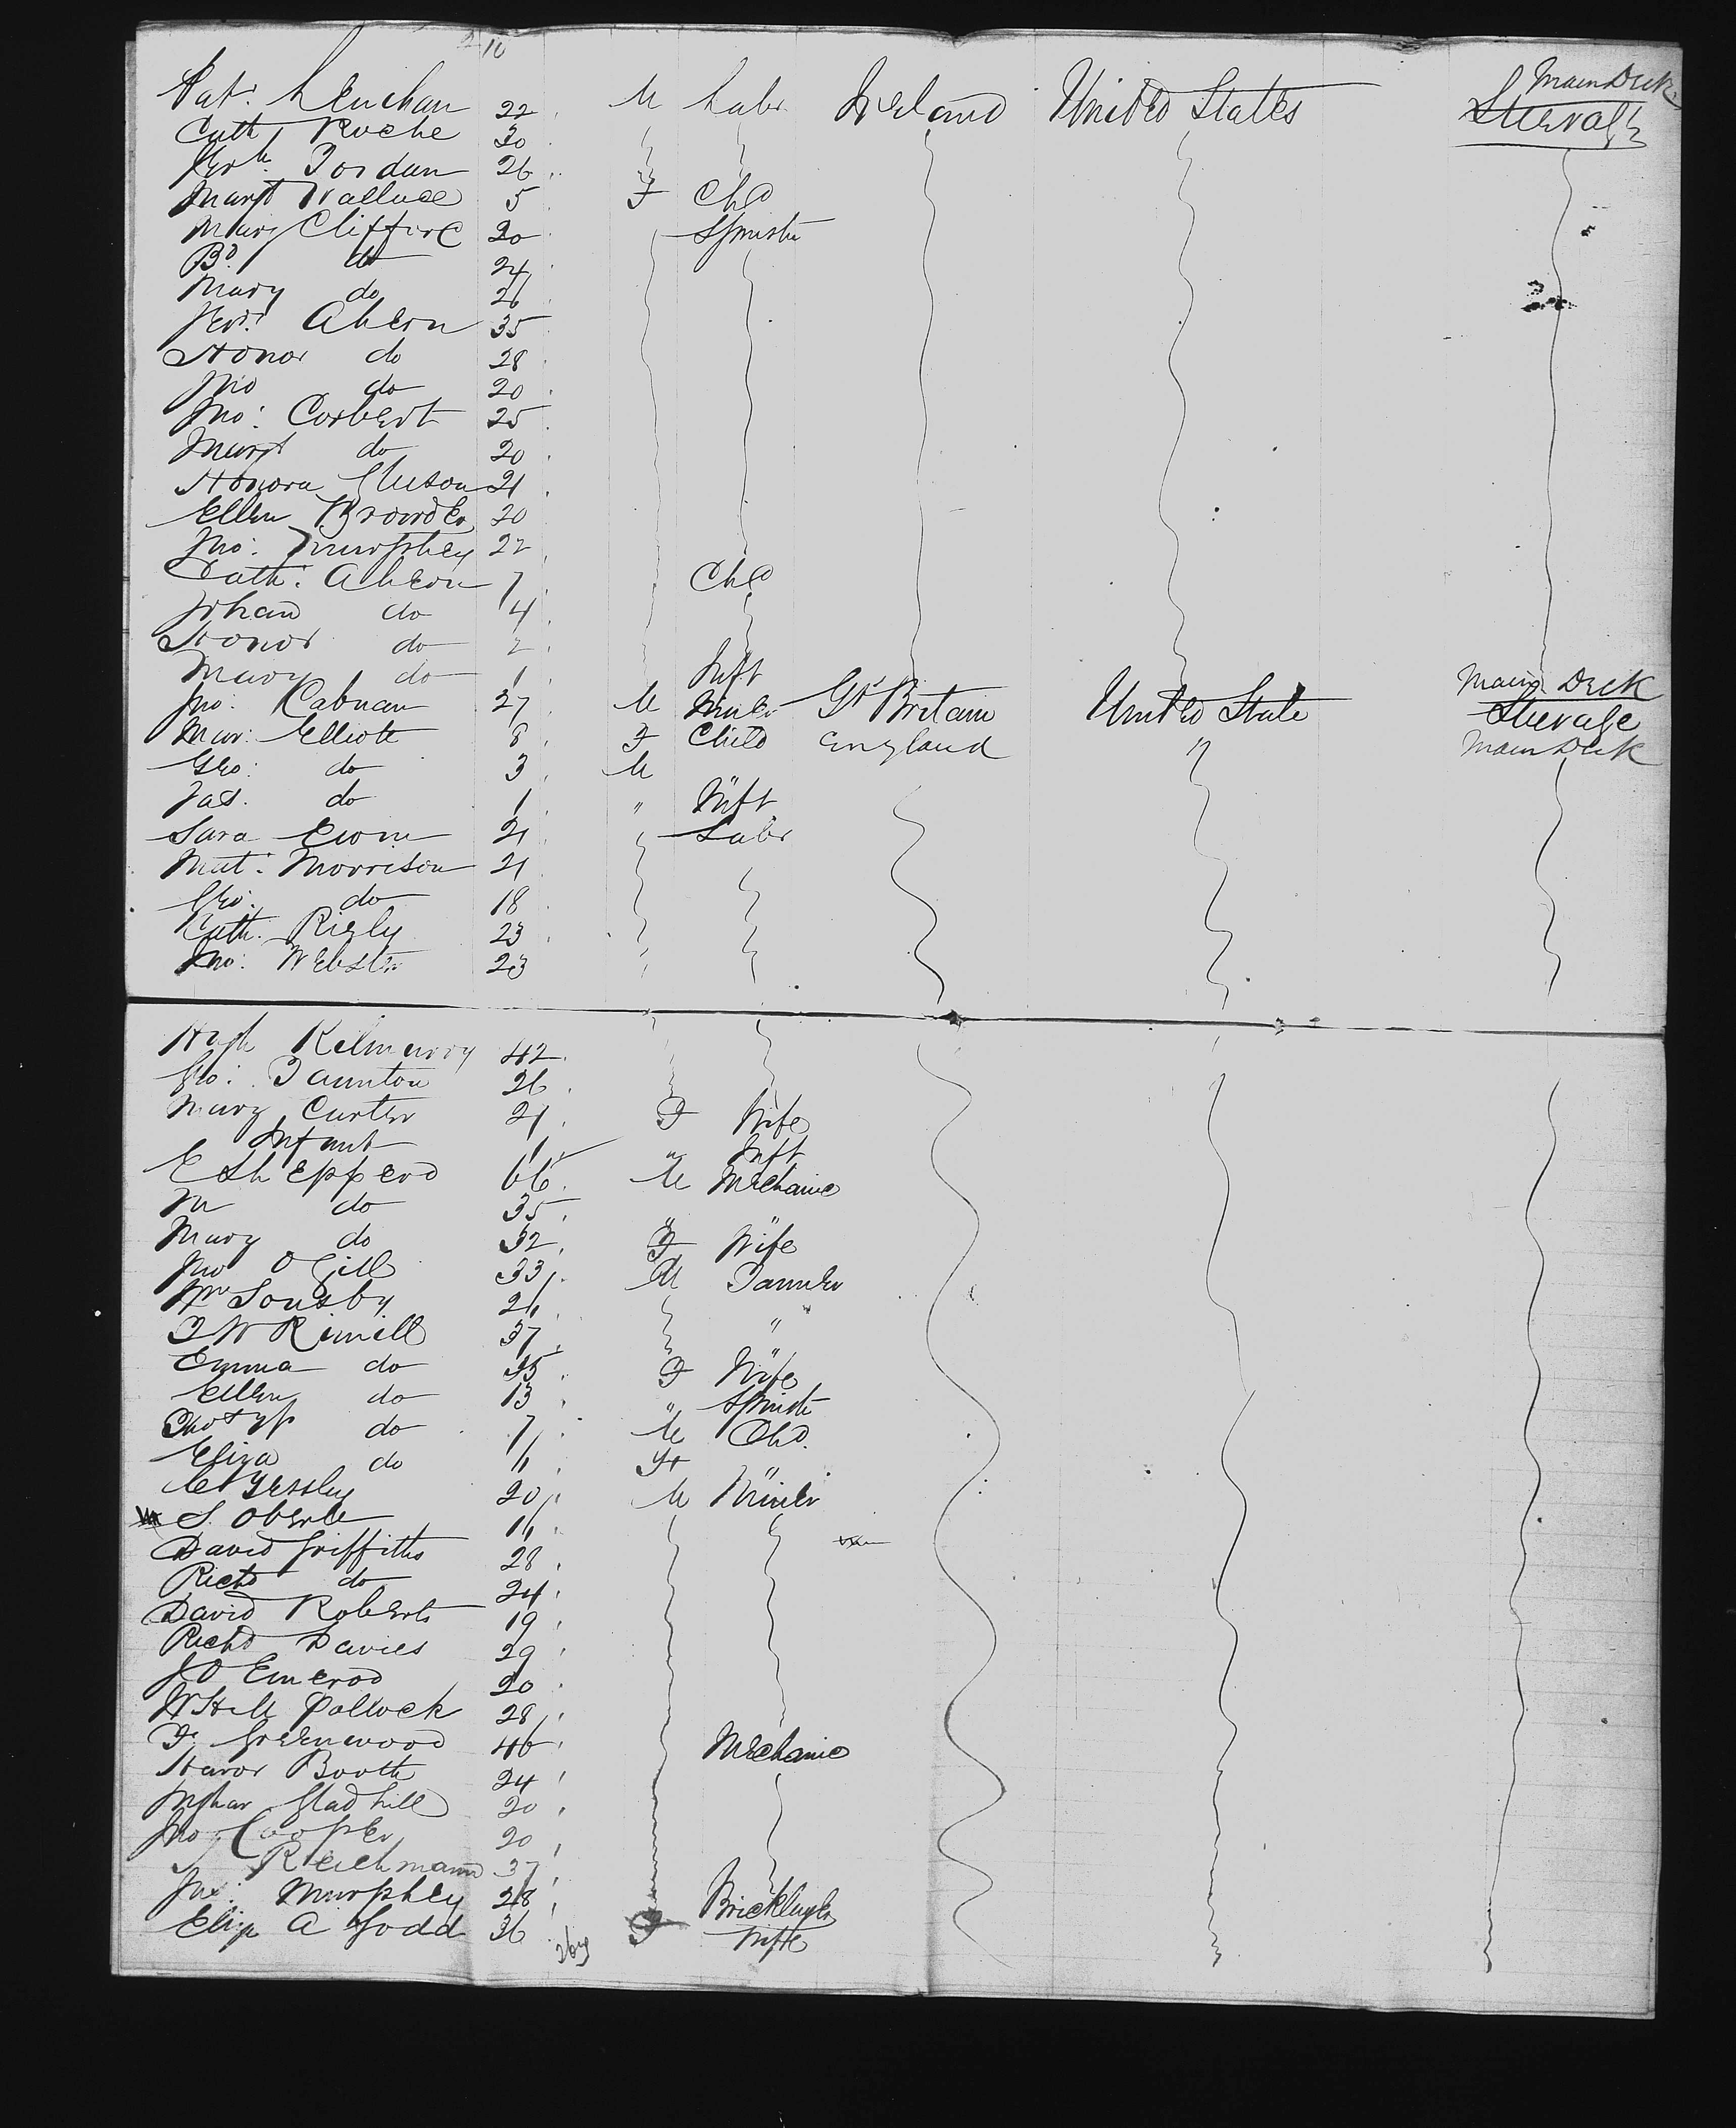 10
Pat. Lenehan 22 M Labr Ireland United States Main Deck Steerage
Cath Roche 30
Jordan 26
Margt Wallace 5 F Chd
Mary Clifford 20 Spinstr
Bd. do 24
Mary do 26
Ahern 35
Honor do 28
Jno do 20
Jno: Corbert 25
Margt do 20
Honora 21
Ellen Browder 20
Jno: Murphey 22
Cath: Ahern 7 Chd
Johan do 4
Honor do 2
Mary do 1 Inft
Jno: 27 M Miner Gt Britain United State Main Deck Steerage
Mar: Elliott 8 F Child England " Main Deck
Geo: do 3 M
Jas. do 1 " Inft
Sara 21 Labr
Mat: Morrison 21
Geo: do 18
Cath: 23
Jno: Webster 23
Hugh 42
Geo: Taunton 26
Mary Carter 21 F Wife
Infant 1 " Inft
E Shepperd 66 M Mechanic
M do 35 "
Mary do 32 F Wife
Jno O Gill 33 M Tanner
Wm Sousby 21
T W Rimill 37 "
Emma do 35 F Wife
Ellen do 13 " Spinstr
do 7 M Chd.
Eliza do 11 F "
20 M Miner
S. Oberle 11
David Griffiths 28
Richd do 24
David Roberts 19
Richd Davies 29
J O Emerod 20
W Hill Pollock 28
F. Greenwood 46 Mechanic
Booth 24
Gladhill 20
Jno Cooper 20
Reichmann 37
Jas: Murphey 28 Bricklayer
Eliz A Todd 36 F Wife